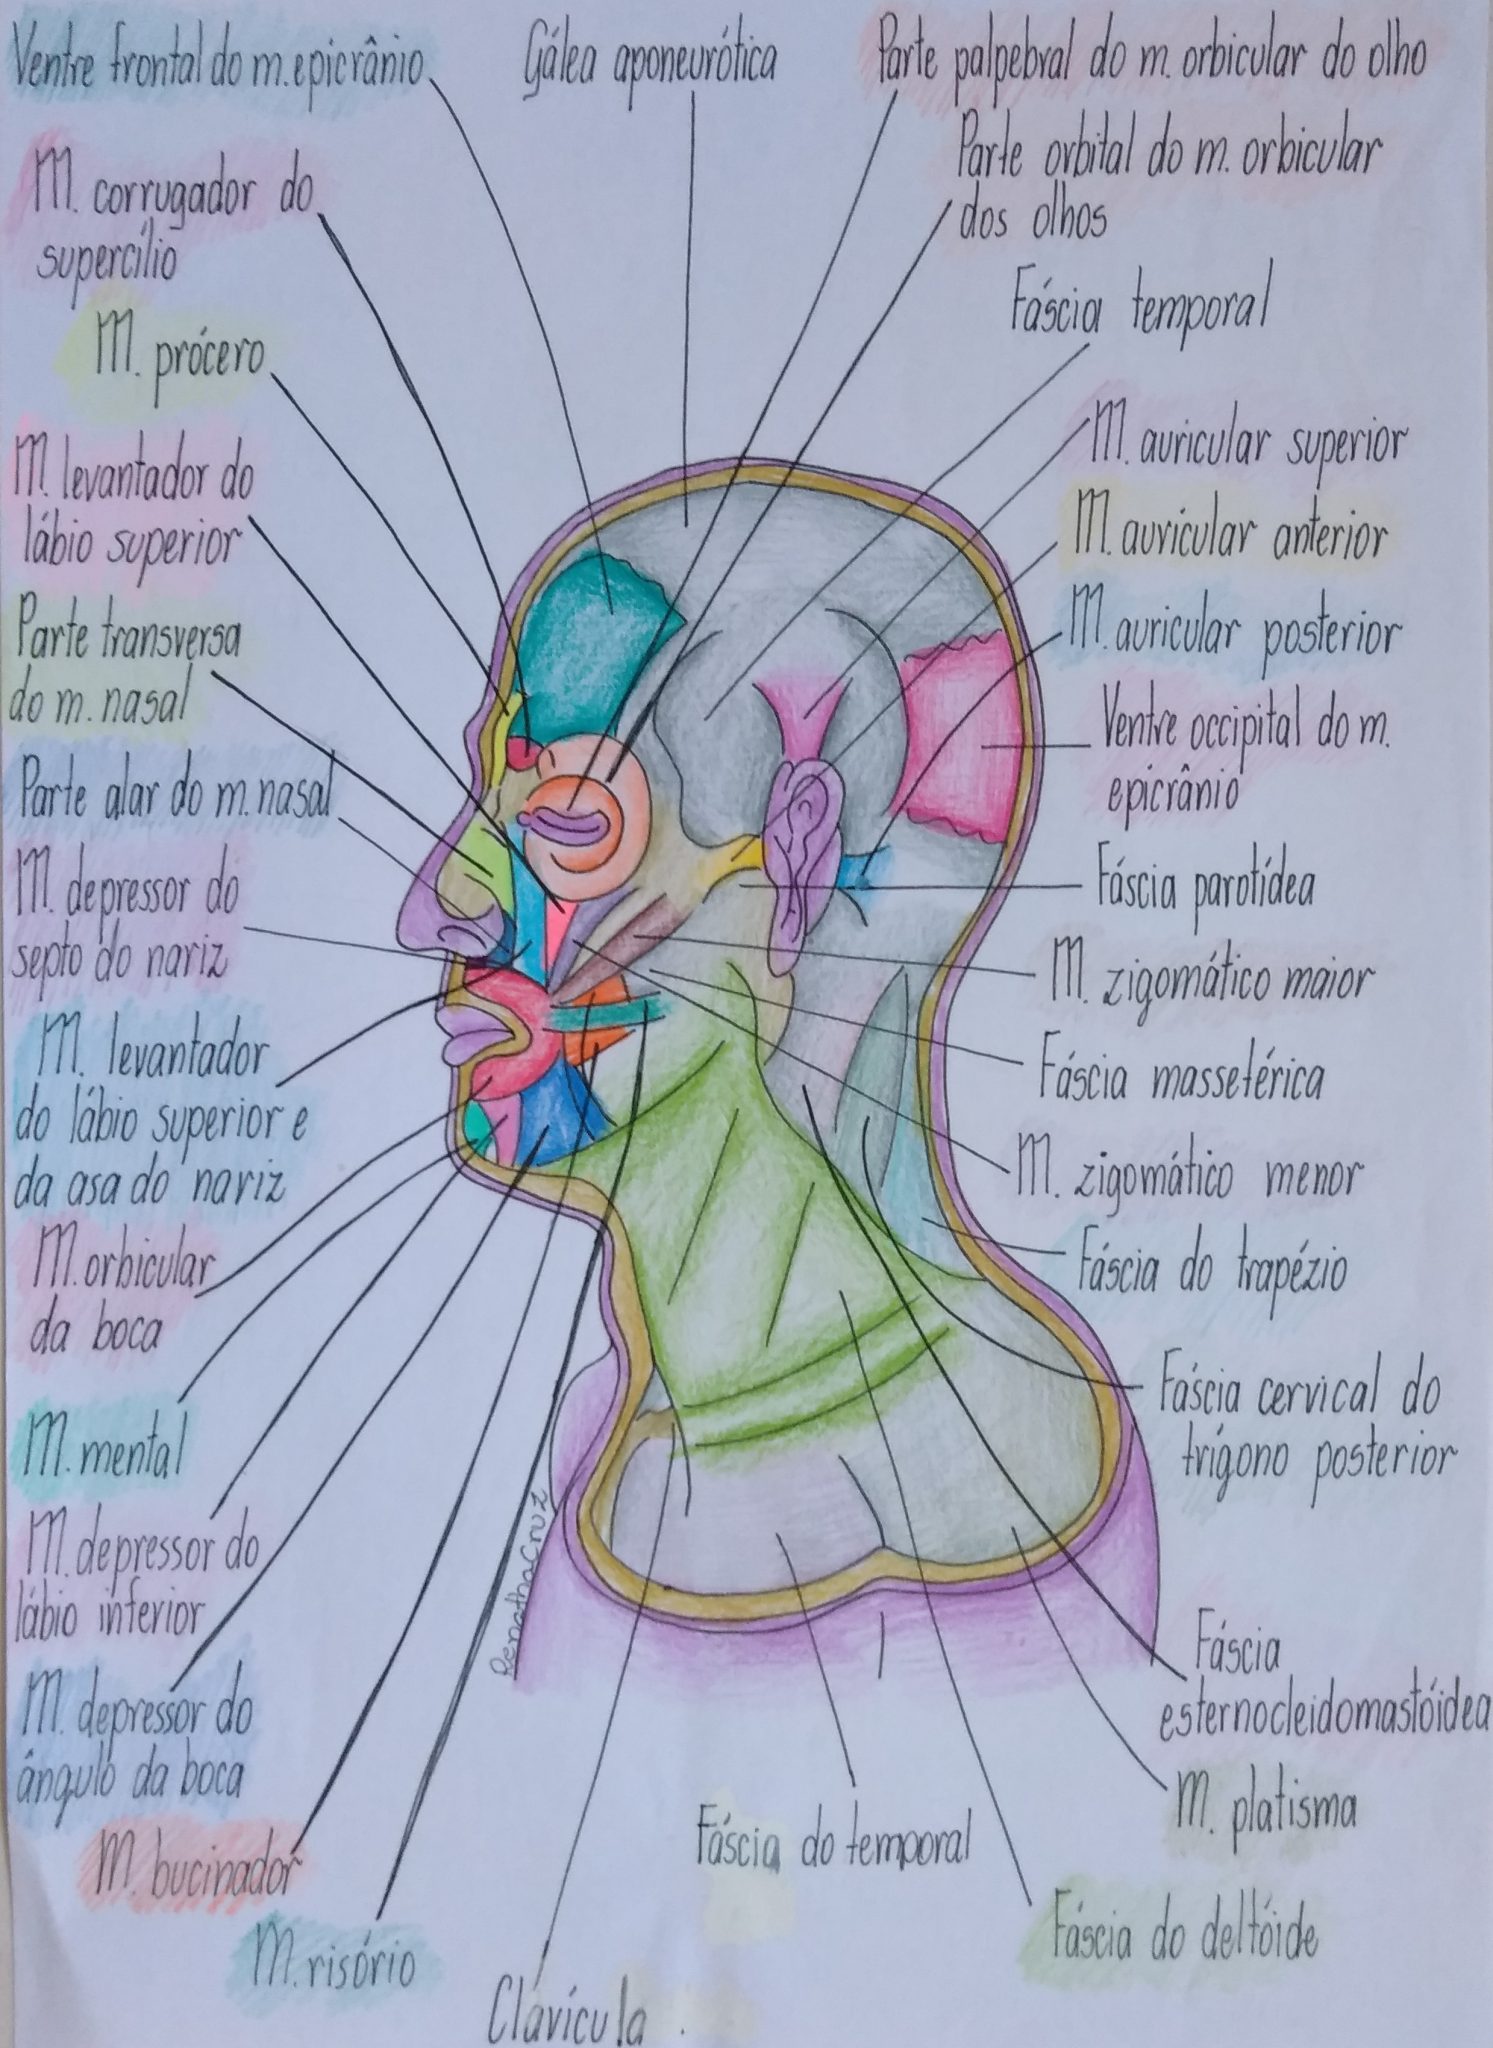 Ventre frontal do m. epicrânio
Gálea aponeurótica
Parte palpebral do m. orbicular do olho
Parte orbital do m. orbicular
dos olhos
M. corrugador do
supercílio
Fáscia temporal
M. prócero
M. auricular superior
M. levantador do
lábio superior
M. auricular anterior
Parte transversa
do m. nasal
M. auricular posterior
Ventre occipital do m.
epicrânio
Parte alar do m. nasal
M. depressor do
septo do nariz
Fáscia parotídea
M. zigomático maior
M. levantador
do lábio superior e
da asa do nariz
Fáscia massetérica
M. zigomático menor
M. orbicular
da boca
Fáscia do trapézio
Fáscia cervical do
trígono posterior
M. mental
M. depressor do
lábio inferior
RenathaCruz
Fáscia
esternocleidomastóidea
M. depressor do
ângulo da boca
M. platisma
M. bucinador
Fáscia do temporal
Fáscia do deltóide
M. risório
Clavícula